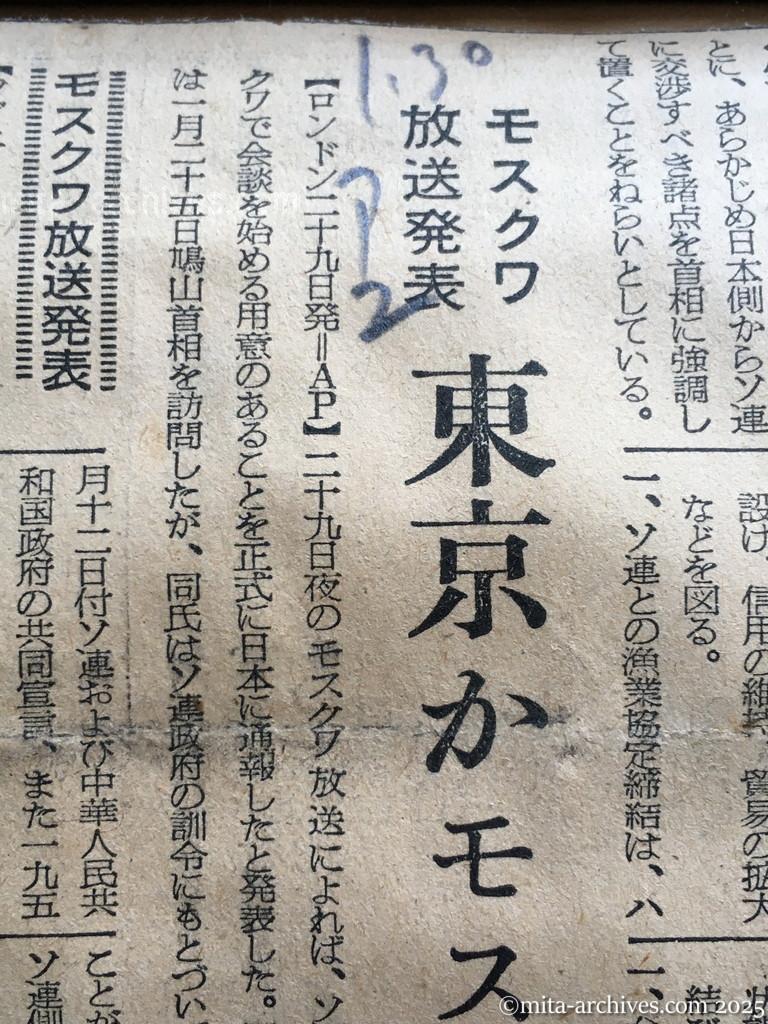 とに、あらかじめ日本側からソ連
に交渉すべき諸点を首相に強調し
て置くことをねらいとしている。
設け、信用の維持、貿易の拡大
などを図る。
一、ソ連との漁業協定締結は、ハ
結
一、
モスクワ
放送発表
東京かモス
1.30
P2
【ロンドン二十九日発＝AP】二十九日夜のモスクワ放送によれば、ソ
クワで会談を始める用意のあることを正式に日本に通報したと発表した。
は一月二十五日鳩山首相を訪問したが、同氏はソ連政府の訓令にもとづい
モスクワ放送発表
月十二日付ソ連および中華人民共
和国政府の共同宣言、また一九五
ことが
ソ連側
©mita-archives.com 2025